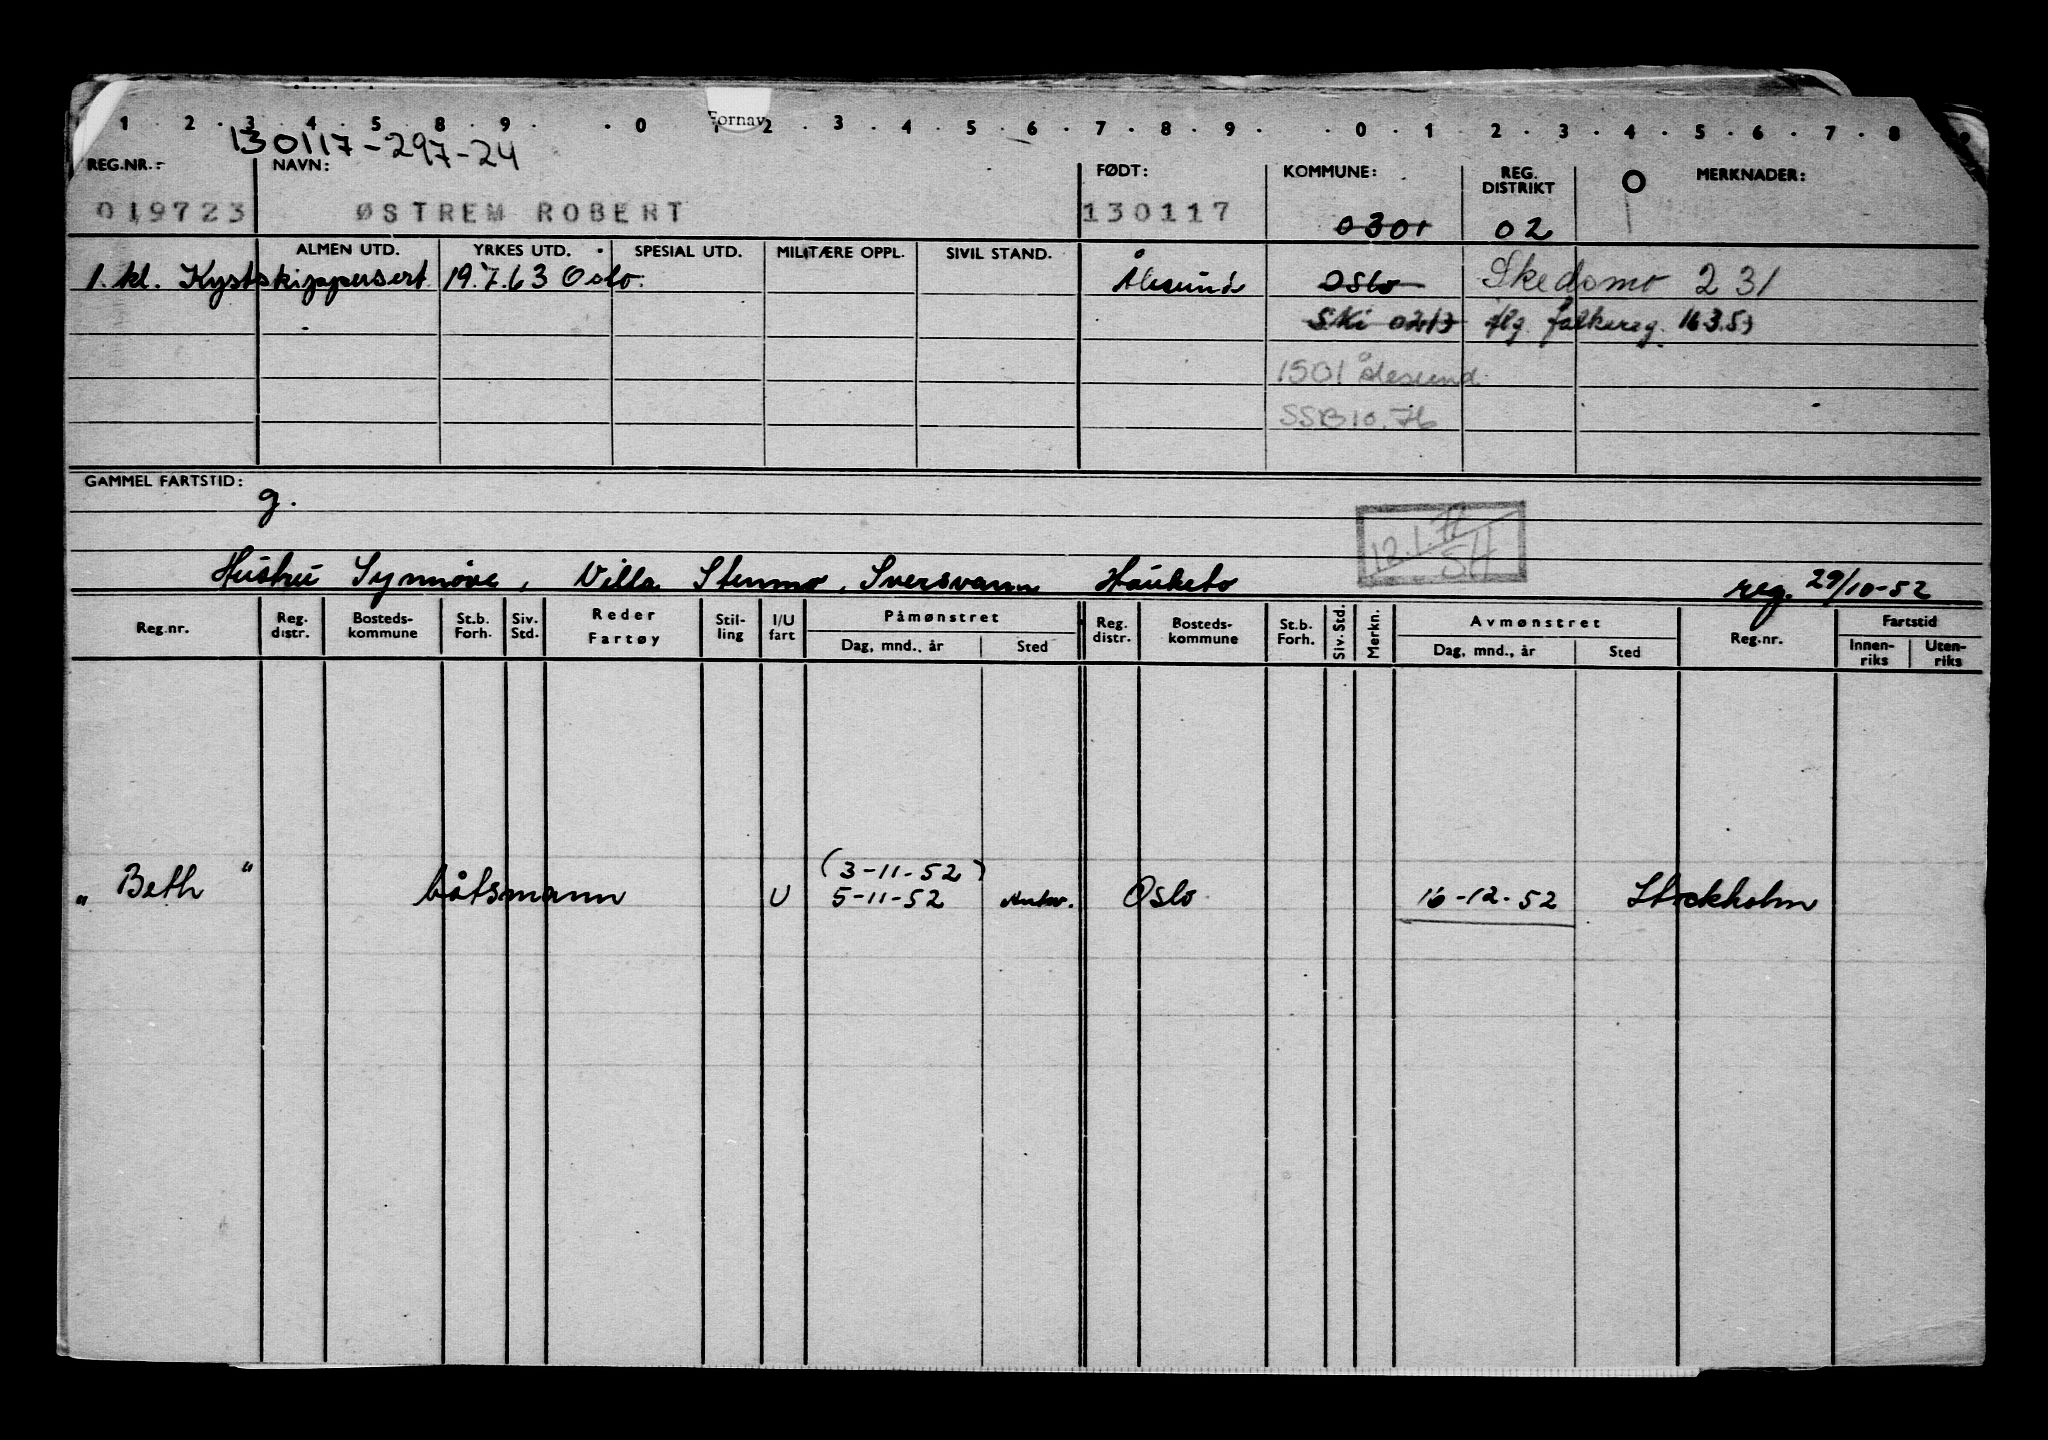 Fornav
1 . 2 . 3 . 4 . 5 . 8 . 9 . . 0 . 1 . 2 . 3 . 4 . 5 . 6 . 7 . 8 . 9 . . 0 . 1 . 2 . 3 . 4 . 5 . 6 . 7 . 8 . 9
130117-297-24
REG.NR.: NAVN: FØDT: KOMMUNE: REG. DISTRIKT O MERKNADER:
019723 ØSTREM ROBERT 130117 0301 02
ALMEN UTD. YRKES UTD. SPESIAL UTD. MILITÆRE OPPL. SIVIL STAND.
1. kl. Kystskippersert. 19.7.63 Oslo. Ålesund Oslo Skedsmo 231
Ski 0213 flg. folkereg. 16.3.53
1501 Ålesund
SSB 10.76
GAMMEL FARTSTID:
g.
12.1.
Hustru Synnøve, Villa Stenmo, Sversvann Hauketo reg. 29/10-52
Reg.nr. Reg. distr. Bosteds- kommune St.b. Forh. Siv. Std. Reder Fartøy Stil- ling I/U fart Påmønstret Reg. distr. Bosteds- kommune St.b. Forh. Siv. Std. Merkn. Avmønstret Reg.nr. Fartstid
Dag, mnd., år Sted Dag, mnd., år Sted Innen- riks Uten- riks
(3-11-52)
„ Beth “ båtsmann U 5-11-52 Antw. Oslo 16-12-52 Stockholm